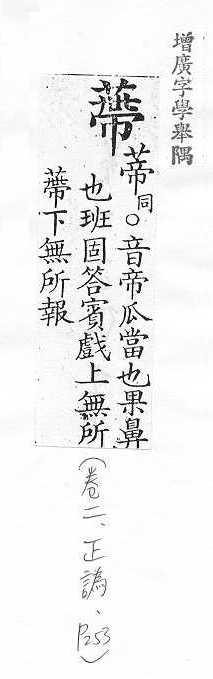 增廣字學舉隅
蔕
蒂同○音帝瓜當也果鼻
也班固答賓戲上無所
蔕下無所報
(卷二、正譌、P253)